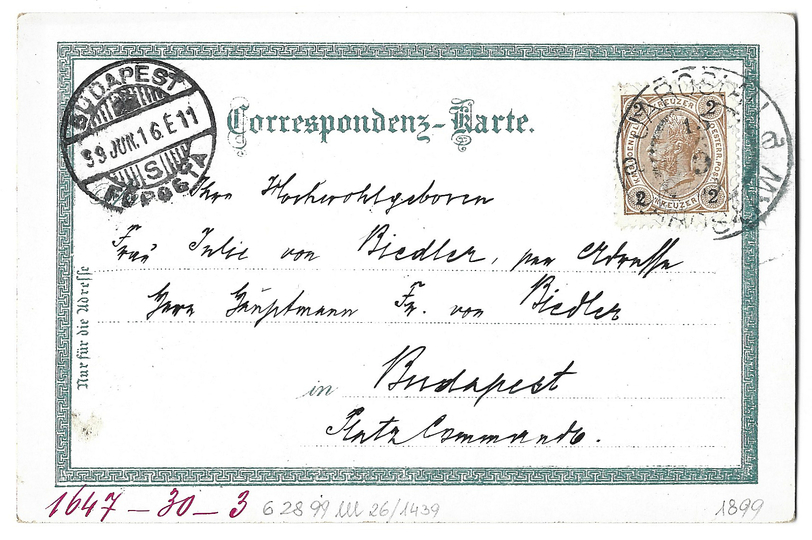 BUDAPEST
99 JUN. 16. E 11
S
Correspondenz-Karte.
2 KREUZER 2
2 KREUZER 2
Ihre Hochwohlgeboren
Frau Julie von Biedler, per Adresse
Herrn Hauptmann Fr. von Biedler
in Budapest
Platz Commando.
Nur für die Adresse
1647-30-3
62899 26/1439
1899